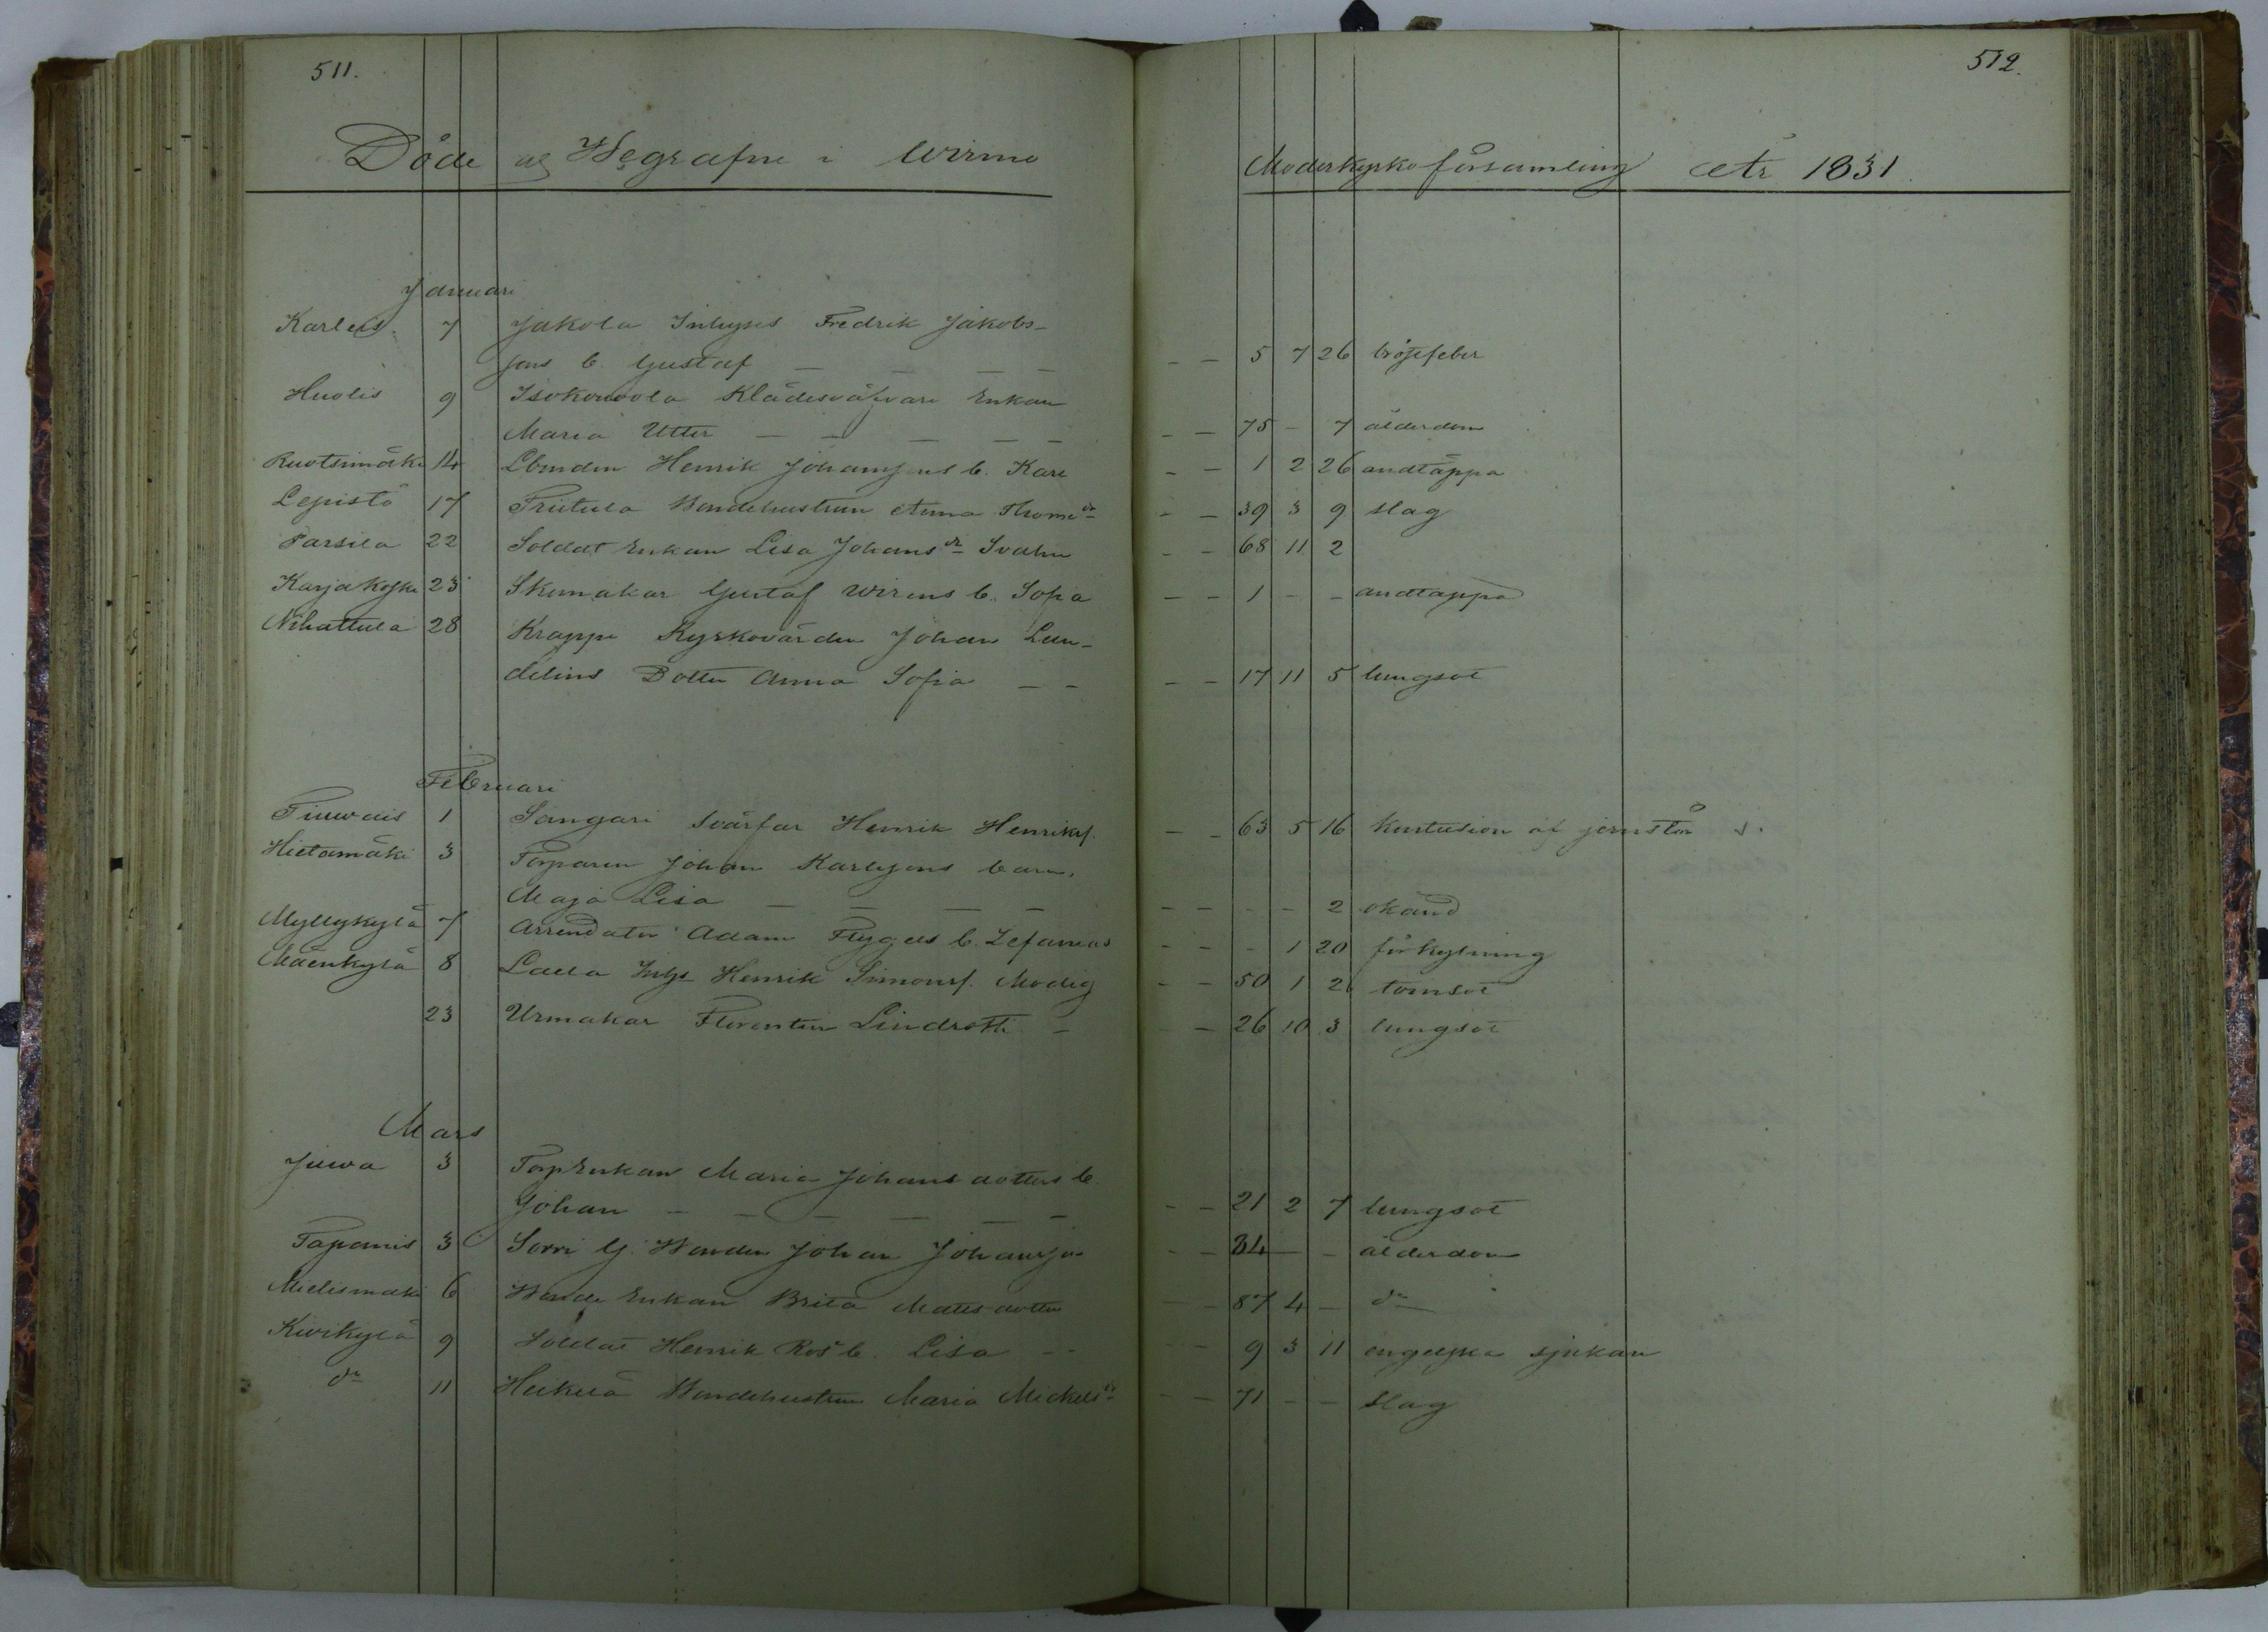 511.
512.
Döde och Begrafne i Wirmo Moderkyrko församling År 1831.
Januari
Karleis 7 Jakola Inhyses Fredrik Jakobs-
sons b. Gustaf — — — — — — 5 7 26 bröstfeber
Huolis 9 Isokouvola Klädesväfvare Enkan
Maria Utter — — — — — — 75 - 7 ålderdom
Ruotsimäki 14 Lbonden Henrik Johanssons b. Karl — — 1 2 26 andtäppa
Lepistö 17 Friitula Bondehustrun Anna Thomedr — — 39 3 9 slag
Parsila 22 Soldat Enkan Lisa Johansdr Svahn — — 68 11 2
Karjakoski 23 Skomakar Gustaf Wirens b. Sofia — — 1 - - andtäppa
Nihattula 28 Krappi Kyrkovärden Johan Lun-
delins Dotter Anna Sofia — — — — 17 11 5 lungsot
Februari
Tiuwais 1 Sangari Svärfar Henrik Henrikss. — — 63 5 16 Kontusion af jernstör
Hietamäki 3 Torparen Johan Karlssons barn
Maja Lisa — — — — — — - - 2 okänd
Myllykylä 7 Arrendator Adam Flygels b. Zefanias — — - 1 20 förkylning
Mäenkylä 8 Lalla Inhs Henrik Simonss. Modig — — 50 1 2 tornsot
23 Urmakar Florentin Lindroth — — 26 10 3 lungsot
Mars
Juwa 3 Torp Enkan Maria Johansdotters b.
Johan — — — — — — — — 21 2 7 lungsot
Tapanis 3 Sorri G. Bonden Johan Johansson — — 84 — - ålderdom
Mielismäki 6 Bonde Enkan Brita Matsdotter — — 87 4 - do
Kivikylä 9 Soldat Henrik Ros b. Lisa — — — — 9 3 11 engelska sjukan
do 11 Heikilä Bondehustrun Maria Mickelsdr — — 71 - - slag